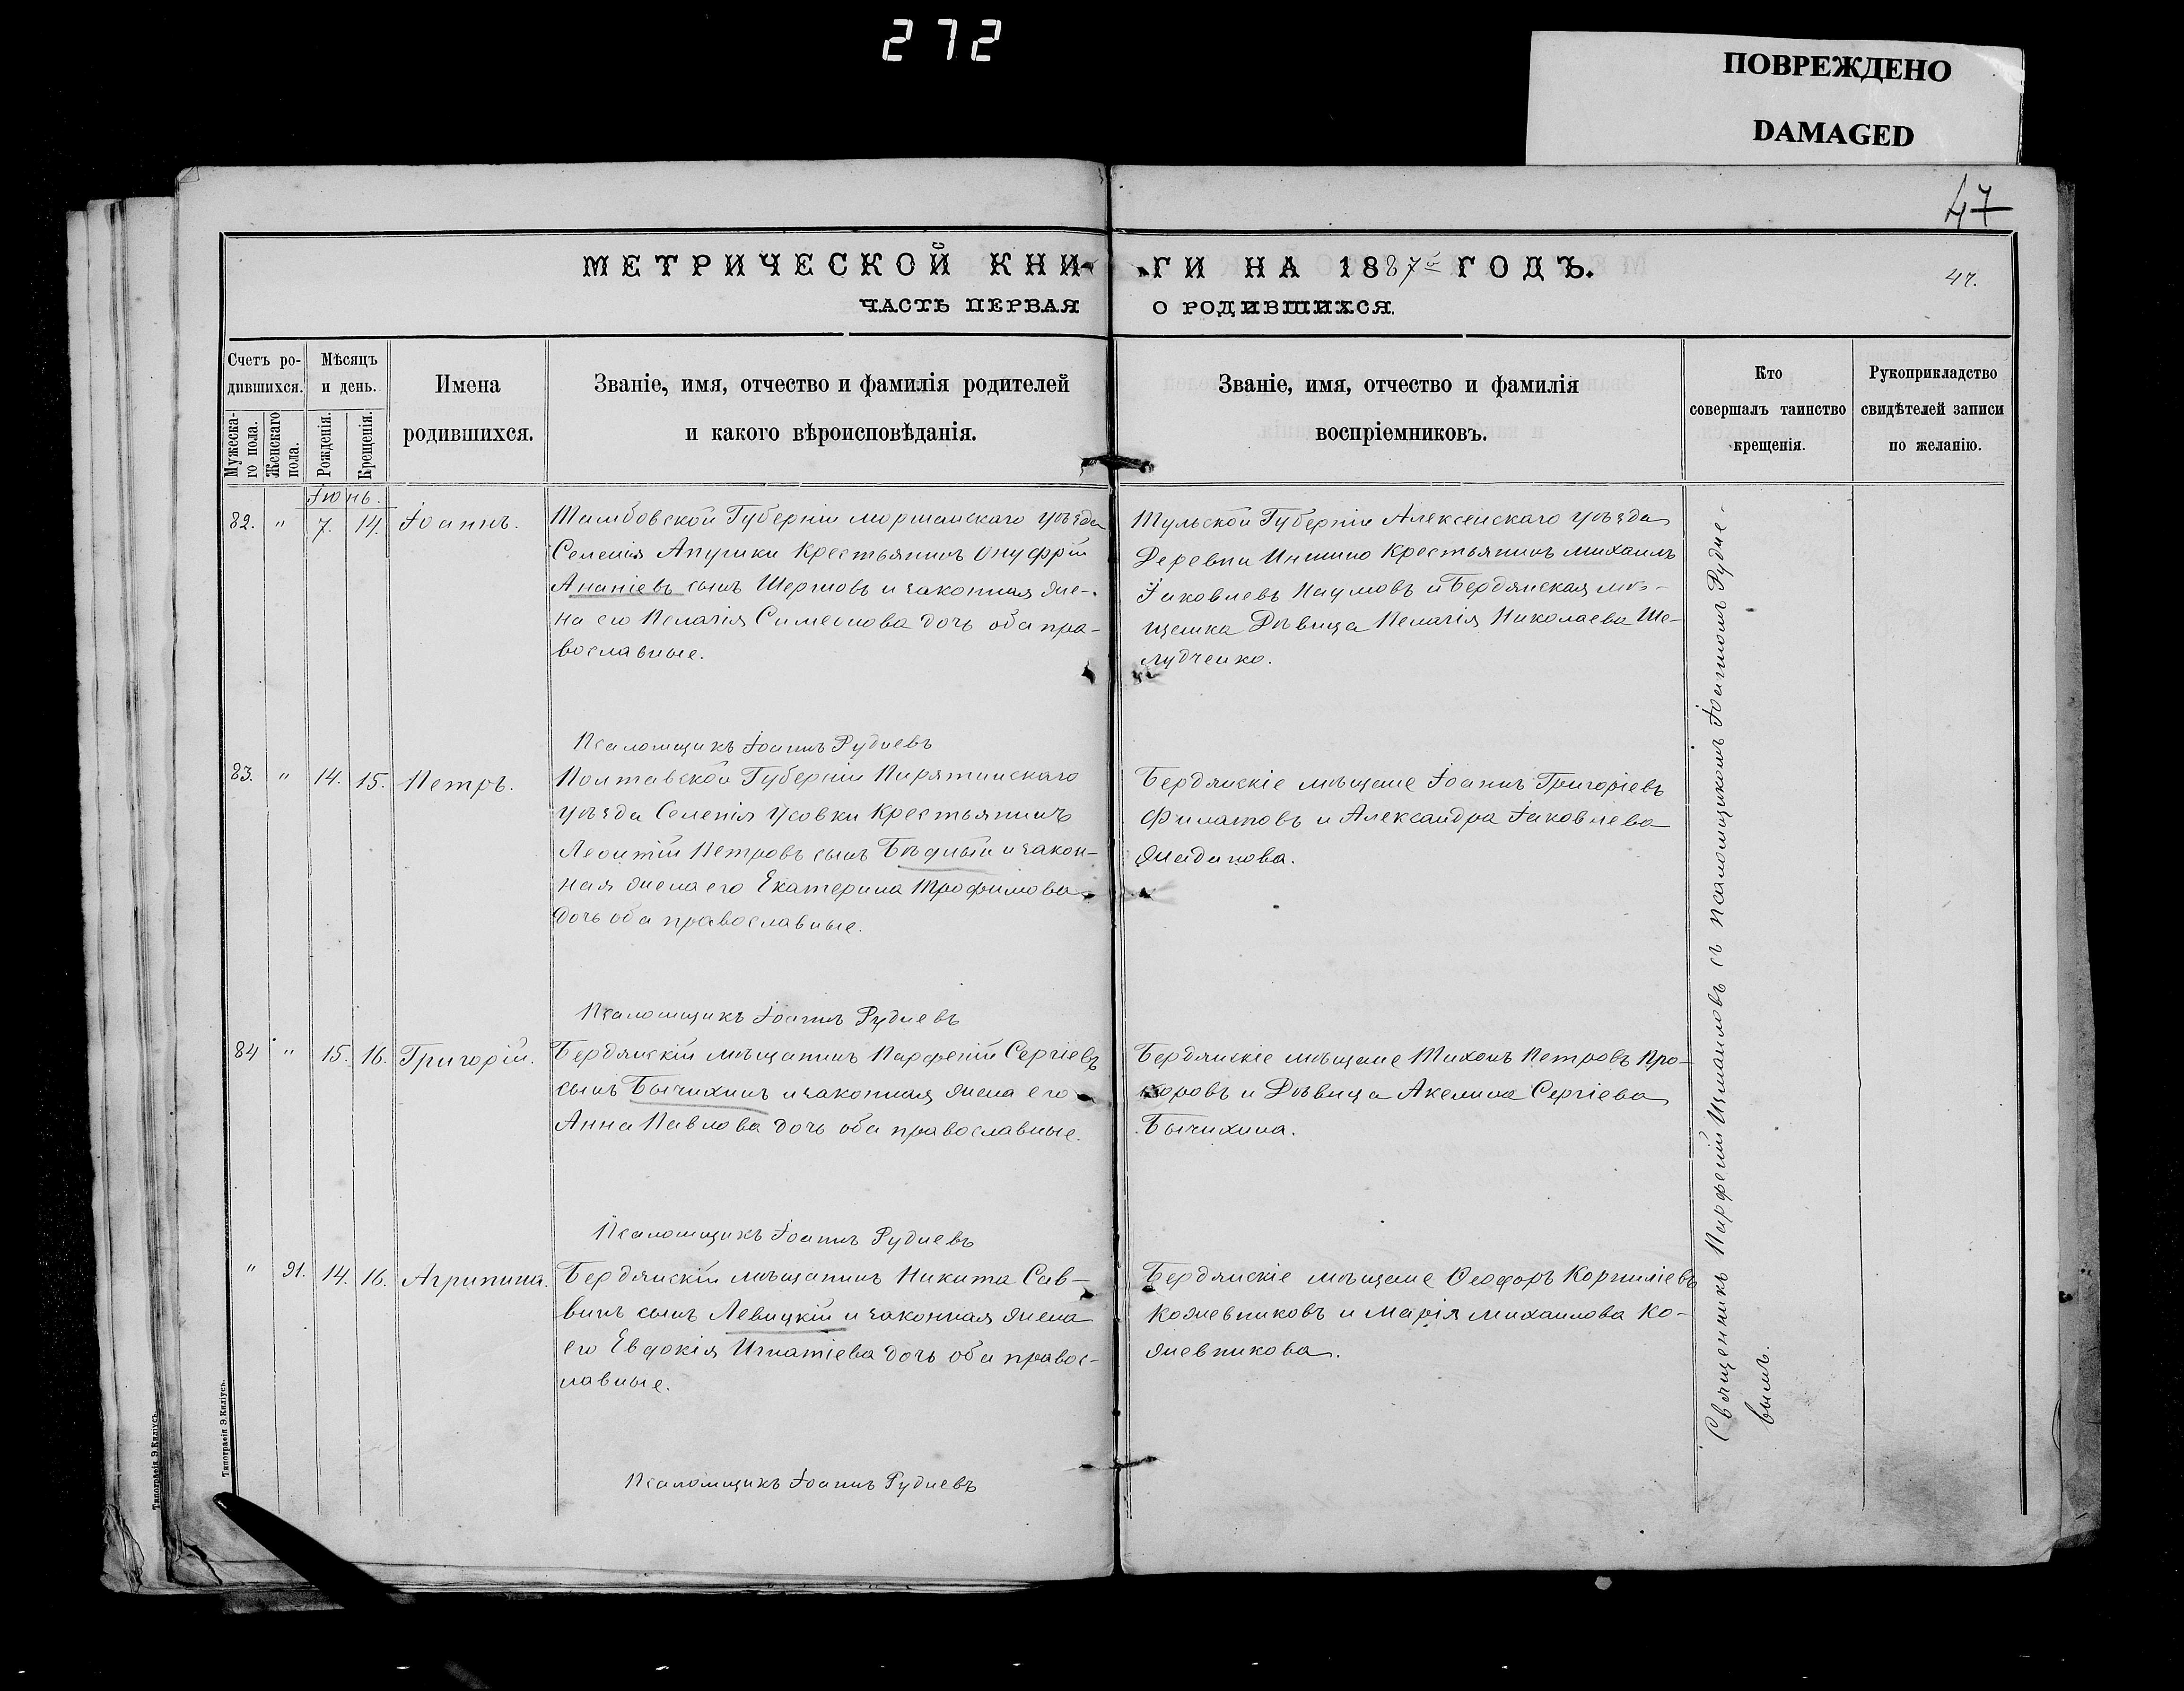 272
ПОВРЕЖДЕНО
DAMAGED
47
МЕТРИЧЕСКОЙ КНИ-
ГИ НА 1887й ГОДЪ.
47.
ЧАСТЬ ПЕРВАЯ
О РОДИВШИХСЯ.
Счетъ ро-
дившихся.
Мужеска-
го пола.
Женскаго
пола.
Мѣсяцъ
и день.
Рожденія.
Крещенія.
Имена
родившихся.
Званіе, имя, отчество и фамилія родителей
и какого вѣроисповѣданія.
Званіе, имя, отчество и фамилія
воспріемниковъ.
Кто
совершалъ таинство
крещенія.
Рукоприкладство
свидѣтелей записи
по желанію.
Іюнь.
82. " 7. 14. Іоаннъ.
Тамбовской Губерніи Моршанскаго уѣзда
Селенія Апушки Крестьянинъ Онуфрій
Ананіевъ сынъ Шершовъ и законная же-
на его Пелагія Симеонова дочь оба пра-
вославные.
Псаломщикъ Іоаннъ Рудневъ
Тульской Губерніи Алексенскаго уѣзда
Деревни Иншино Крестьянинъ Михаилъ
Іаковлевъ Наумовъ и Бердянская мѣ-
щанка Дѣвица Пелагія Николаева Ше-
лудченко.
83. " 14. 15. Петръ.
Полтавской Губерніи Пирятинскаго
уѣзда Селенія Усовки Крестьянинъ
Леонтій Петровъ сынъ Бѣдный и закон-
ная жена его Екатерина Трофимова
дочь оба православные.
Псаломщикъ Іоаннъ Рудневъ
Бердянскіе мѣщане Іоаннъ Григоріевъ
Филатовъ и Александра Іаковлева
Жаданова.
84 " 15. 16. Григорій.
Бердянскій мѣщанинъ Парфеній Сергіевъ
сынъ Бычихинъ и законная жена его
Анна Павлова дочь оба православные.
Псаломщикъ Іоаннъ Рудневъ
Бердянскіе мѣщане Тихонъ Петровъ Про-
хоровъ и Дѣвица Акелина Сергіева
Бычихина.
" 91. 14. 16. Агрипина.
Бердянскій мѣщанинъ Никита Сав-
винъ сынъ Левицкій и законная жена
его Евдокія Игнатіева дочь оба правос-
лавные.
Псаломщикъ Іоаннъ Рудневъ
Бердянскіе мѣщане Ѳеодоръ Корниліевъ
Кожевниковъ и Марія Михаилова Ко-
жевникова.
Священникъ Парфеній Измаиловъ съ псаломщикомъ Іоанномъ Рудне-
вымъ.
Типографія Э. Киліусъ.
Типографія Э. Киліусъ.